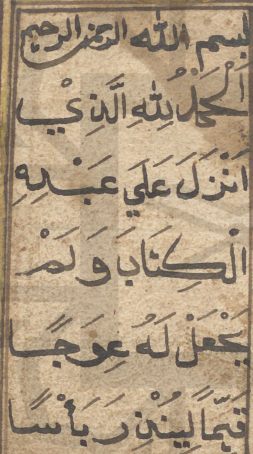 بسم الله الرحمن الرحيم
اَلْحَمْدُ لِلهِ الَّذِيْ
اَنْزَلَ عَلَي عَبْدِهِ
الْكِتَابَ وَ لَمْ
يَجْعَلْ لَهُ عِوَجًا
قَيِّمًا لِيُنْذِرَ بَأْسًا